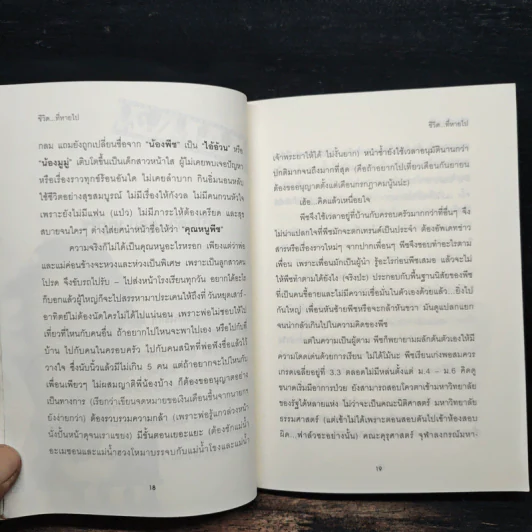 ชีวิต...ที่หายไป
กลม แถมยังถูกเปลี่ยนชื่อจาก "น้องพีช" เป็น "ไอ้อ้วน" หรือ
"น้องมูมู่" เติบโตขึ้นเป็นเด็กสาวหน้าใส ผู้ไม่เคยพบเจอปัญหา
หรือเรื่องราวทุกข์ร้อนอันใด ไม่เคยลำบาก กินอิ่มนอนหลับ
ใช้ชีวิตอย่างสุขสมบูรณ์ ไม่มีเรื่องให้กังวล ไม่มีคนกวนหัวใจ
เพราะยังไม่มีแฟน (แป่ว) ไม่มีภาระให้ต้องเครียด และสุข
สบายจนใครๆ ต่างใส่ยศนำหน้าชื่อให้ว่า "คุณหนูพีช"
ความจริงก็ไม่ได้เป็นคุณหนูอะไรหรอก เพียงแต่ว่าพ่อ
และแม่ค่อนข้างจะหวงและห่วงเป็นพิเศษ เพราะเป็นลูกสาวคน
โปรด จึงขับรถไปรับ - ไปส่งหน้าโรงเรียนทุกวัน อยากได้อะไร
ก็บอกแล้วผู้ใหญ่ก็จะไปสรรหามาประเคนให้ถึงที่ วันหยุดเสาร์ -
อาทิตย์ไม่ต้องนัดใครไม่ได้ไปแน่นอน เพราะพ่อไม่ชอบให้ไป
เที่ยวที่ไหนกับคนอื่น ถ้าอยากไปไหนจะพาไปเอง หรือไปกับพี่
บ้าน ไปกับคนในครอบครัว ไปกับคนสนิทที่พ่อพึงซื่อแล้วไว้
วางใจ ซึ่งนับนิ้วแล้วมีไม่เกิน 5 คน แต่ถ้าอยากจะไปไหนกับ
เพื่อนเพียวๆ ไม่ผสมญาติพี่น้องบ้าง ก็ต้องขออนุญาตอย่าง
เป็นทางการ (เรียกว่าเขียนจดหมายขอเงินเดือนขึ้นจากนายก
ยังง่ายกว่า) ต้องรวบรวมความกล้า (เพราะพ่อรู้แกวล่วงหน้า
นั่งปั้นหน้าดุจนเราแขยง) มีขั้นตอนเยอะแยะ (ต้องชักแม่น้ำ
อะเมซอนและแม่น้ำฮวงโหมาบรรจบกับแม่น้ำโขงและแม่น้ำ
18
ชีวิต...ที่หายไป
เจ้าพระยาให้ได้ ไม่งั้นยาก) หน้าซ้ำยังใช้เวลาอนุมัตินานกว่า
ปกติมากจนถึงมากที่สุด (คือถ้าอยากไปเที่ยวเดือนกันยายน
ต้องขออนุญาตตั้งแต่เดือนกรกฎาคมนู้นน่ะ)
เฮ้อ...คิดแล้วเหนื่อยใจ
พีชจึงใช้เวลาอยู่ที่บ้านกับครอบครัวมากกว่าที่อื่นๆ จึง
ไม่น่าแปลกใจที่พีชมักจะตกเทรนด์เป็นประจำ ต้องอัพเดทข่าว
สารหรือเรื่องราวใหม่ๆ จากปากเพื่อนๆ พีชจึงชอบทำอะไรตาม
เพื่อน เพราะเพื่อนมักเป็นผู้นำ รู้อะไรก่อนพีชเสมอ แล้วจะไม่
ให้พีชทำตามได้ยังไง (จริงปะ) ประกอบกับพื้นฐานนิสัยของพีช
ที่เป็นคนขี้อายและไม่มีความเชื่อมั่นในตัวเองด้วยแล้ว...ยิ่งไป
กันใหญ่ เพื่อนหันซ้ายพีชหรือจะกล้าหันขวา มันดูแปลกแยก
จนน่ากลัวเกินไปในความคิดของพีช
แต่ในความเป็นผู้ตาม พีชก็พยายามผลักดันตัวเองให้มี
ความโดดเด่นด้วยการเรียน ไม่ได้โม้นะ พีชเรียนเก่งพอสมควร
เกรดเฉลี่ยอยู่ที่ 3.3 ตลอดไม่มีหล่นตั้งแต่ ม.4 - ม.6 คิดดู
ขนาดเริ่มมีอาการป่วย ยังสามารถสอบโควตาเข้ามหาวิทยาลัย
ของรัฐได้หลายแห่ง ไม่ว่าจะเป็นคณะนิติศาสตร์ มหาวิทยาลัย
ธรรมศาสตร์ (แต่เข้าไม่ได้เพราะตอนสอบดันไปเข้าห้องสอบ
ผิด...ฟาล์วซะอย่างนั้น) คณะครุศาสตร์ จุฬาลงกรณ์มหา-
19